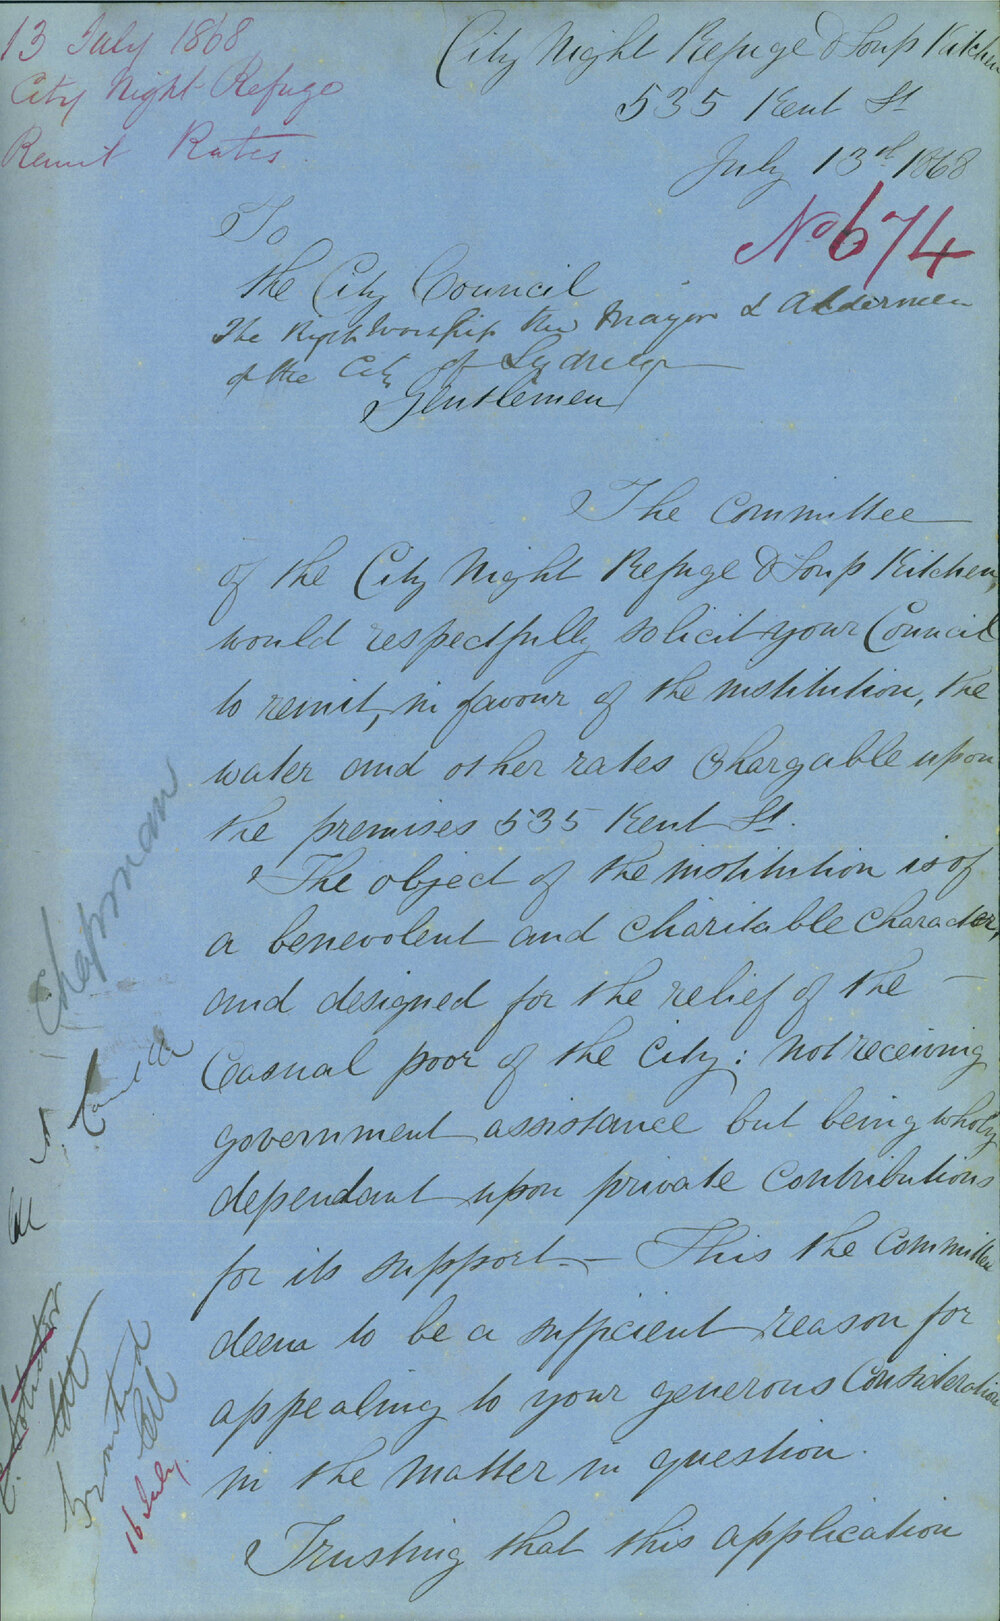 13 July 1868
City Night Refuge
Remit Rates
City Night Refuge & Soup Kitchen
535 Kent St
July 13th 1868
No 674
To
the City Council
The Right Worship the Mayor & Aldermen
of the City of Sydney
Gentlemen
The Committee
of the City Night Refuge & Soup Kitchen,
would respectfully solicit your Council
to remit, in favour of the institution, the
water and other rates chargable upon
the premises 535 Kent St.
The object of the institution is of
a benevolent and charitable character,
and designed for the relief of the
Casual poor of the City: not receiving
government assistance but being wholy
dependant upon private contributions
for its support - This the Committee
deem to be a sufficient reason for
appealing to your generous Consideration
in the matter in question.
Trusting that this application
Chapman
16 July